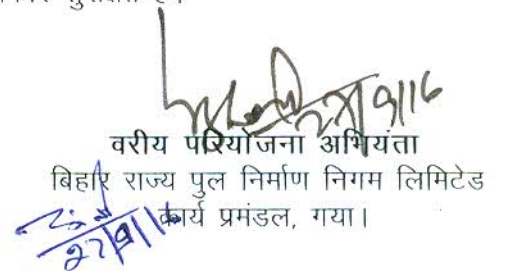 27/9/16
वरीय परियोजना अभियंता
बिहार राज्य पुल निर्माण निगम लिमिटेड
कार्य प्रमंडल, गया।
27/9/16